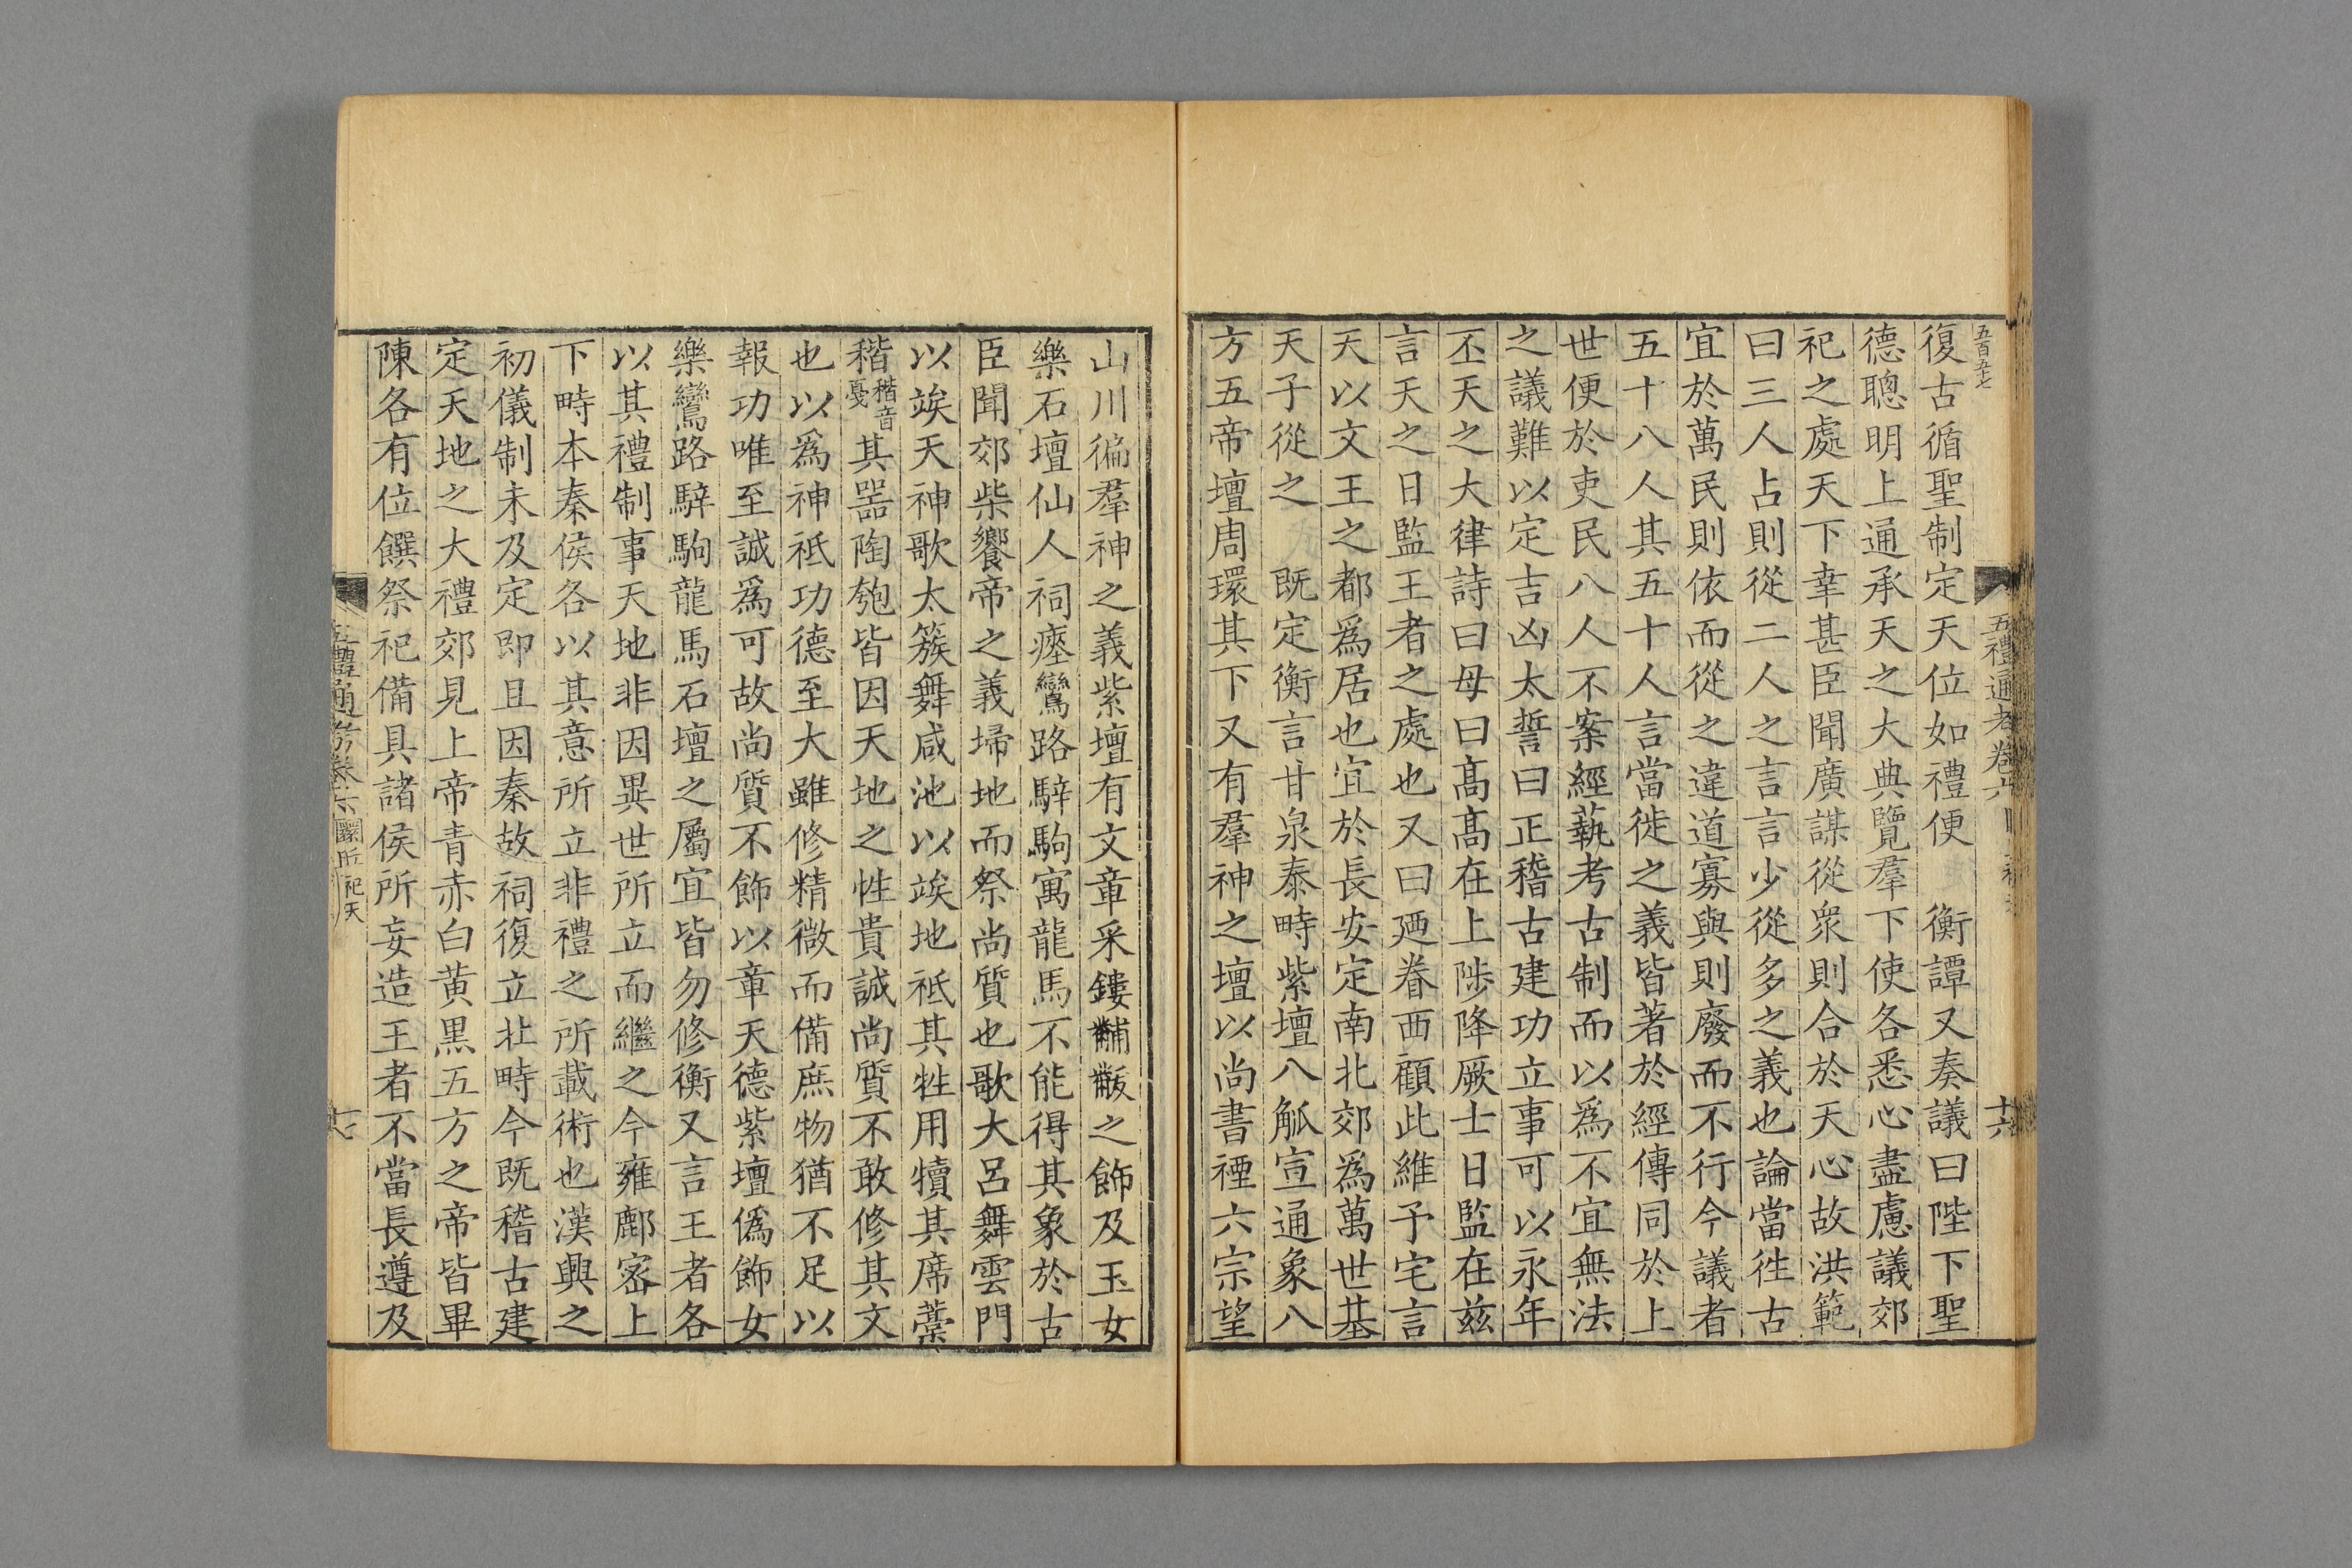 五百五十七
復古循聖制定天位如禮便　衡譚又奏議曰陛下聖
德聰明上通承天之大典覽羣下使各悉心盡慮議郊
祀之處天下幸甚臣聞廣謀從衆則合於天心故洪範
曰三人占則從二人之言言少從多之義也論當徃古
宜於萬民則依而從之違道寡與則廢而不行今議者
五十八人其五十人言當徙之義皆著於經傳同於上
世便於吏民八人不案經藝考古制而以爲不宜無法
之議難以定吉凶太誓曰正稽古建功立事可以永年
丕天之大律詩曰毋曰髙髙在上陟降厥士日監在兹
言天之日監王者之處也又曰廼眷西顧此維予宅言
天以文王之都爲居也宜於長安定南北郊爲萬世基
天子從之　既定衡言甘泉泰畤紫壇八觚宣通象八
方五帝壇周環其下又有羣神之壇以尚書禋六宗望
五禮通考卷六
十六
山川徧羣神之義紫壇有文章采鏤黼黻之飾及玉女
樂石壇仙人祠瘞鸞路騂駒寓龍馬不能得其象於古
臣聞郊柴饗帝之義埽地而祭尚質也歌大呂舞雲門
以竢天神歌太簇舞咸池以竢地祗其牲用犢其席藁
稭稭音戛其噐陶匏皆因天地之性貴誠尚質不敢修其文
也以爲神祗功德至大雖修精微而備庶物猶不足以
報功唯至誠爲可故尚質不飾以章天德紫壇僞飾女
樂鸞路騂駒龍馬石壇之屬宜皆勿修衡又言王者各
以其禮制事天地非因異世所立而繼之今雍鄜宻上
下畤本秦侯各以其意所立非禮之所載術也漢興之
初儀制未及定即且因秦故祠復立北畤今既稽古建
定天地之大禮郊見上帝青赤白黃黑五方之帝皆畢
陳各有位饌祭祀備具諸侯所妄造王者不當長遵及
五禮通考卷六 圜丘祀天
十七